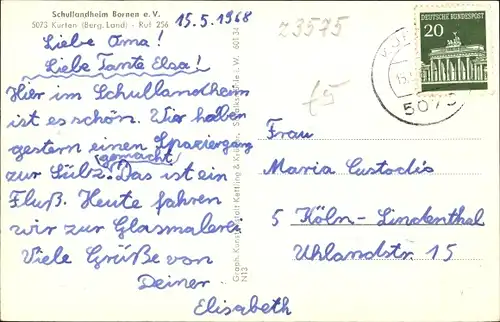 Schullandheim Bornen e.V.
5073 Kürten (Berg. Land) - Ruf 256
15.5.1968
Liebe Oma!
Liebe Tante Elsa!
Hier im Schullandheim
ist es schön. Wir haben
gestern einen Spaziergang
zur Sülz gemacht. Das ist ein
Fluß. Heute fahren
wir zur Glasmalerei.
Viele Grüße von
Deiner
Elisabeth
Graph. Kunstanstalt Kettling & Krüger, Schalksmühle i. W. 60134
N13
23575
£5
DEUTSCHE BUNDESPOST
20
5073
Frau
Maria Custodis
5 Köln-Lindenthal
Uhlandstr. 15